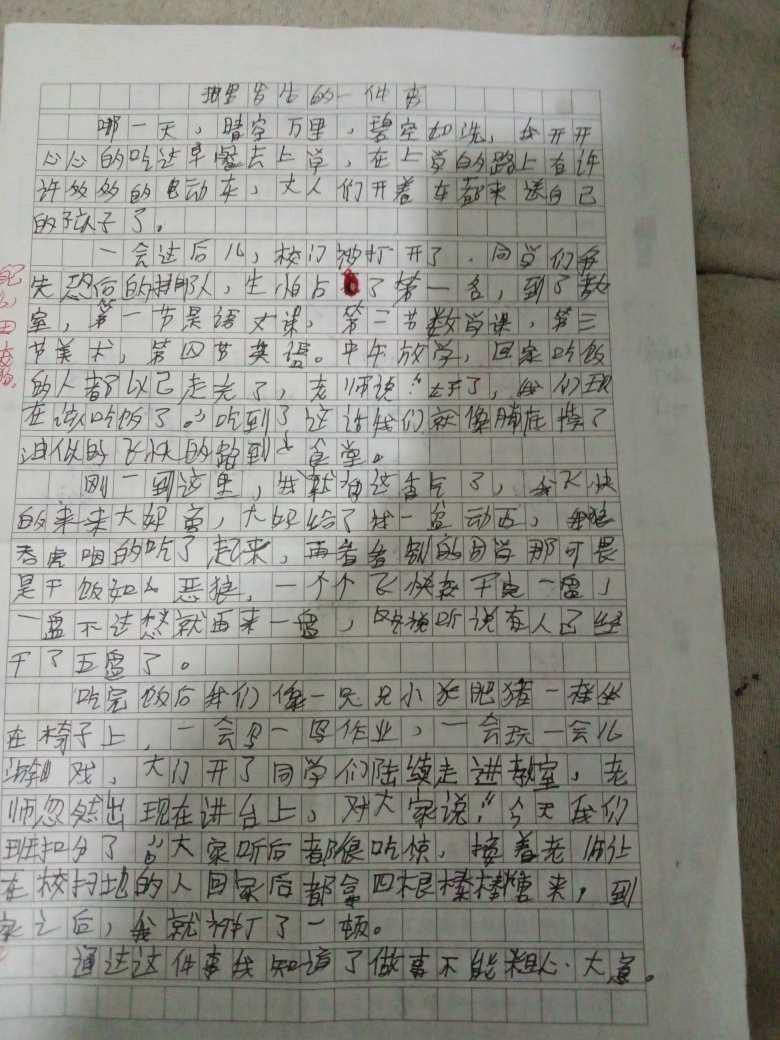 班里发生的一件事
哪一天，晴空万里，碧空如洗，我开开
心心的吃过早餐去上学，在上学的路上有许
许多多的电动车，大人们开着车都来送自己
的孩子了。
一会过后儿，校门被打开了，同学们争
先恐后的排队，生怕占了第一名，到了教
室，第一节是语文课，第二节数学课，第三
节美术，第四节英语。中午放学，回家吃饭
的人都以己走光了，老师说："好了，我们现
在该吃饭了。"吃到了这话我们就像脚底擦了
油似的飞快的跑到食堂。
刚一到这里，我就闻这香气了，我飞快
的来来大妈旁，大妈给了我一盘动西，我狼
吞虎咽的吃了起来，再看看别的同学那可畏
是干饭如恶狼，一个个飞快干完一盘，
一盘不过瘾就再来一盘，听说有人已经
干了五盘了。
吃完饭后我们像一只只小肥猪一样坐
在椅子上，一会写作业，一会玩一会儿
游戏，大门开了同学们陆续走进教室，老
师忽然出现在讲台上，对大家说："今天我们
班扣分了"大家听后都很吃惊，接着老师让
在校扫地的人回家后都拿四根棒棒糖来，到
家之后，我就被打了一顿。
通过这件事我知道了做事不能粗心大意。